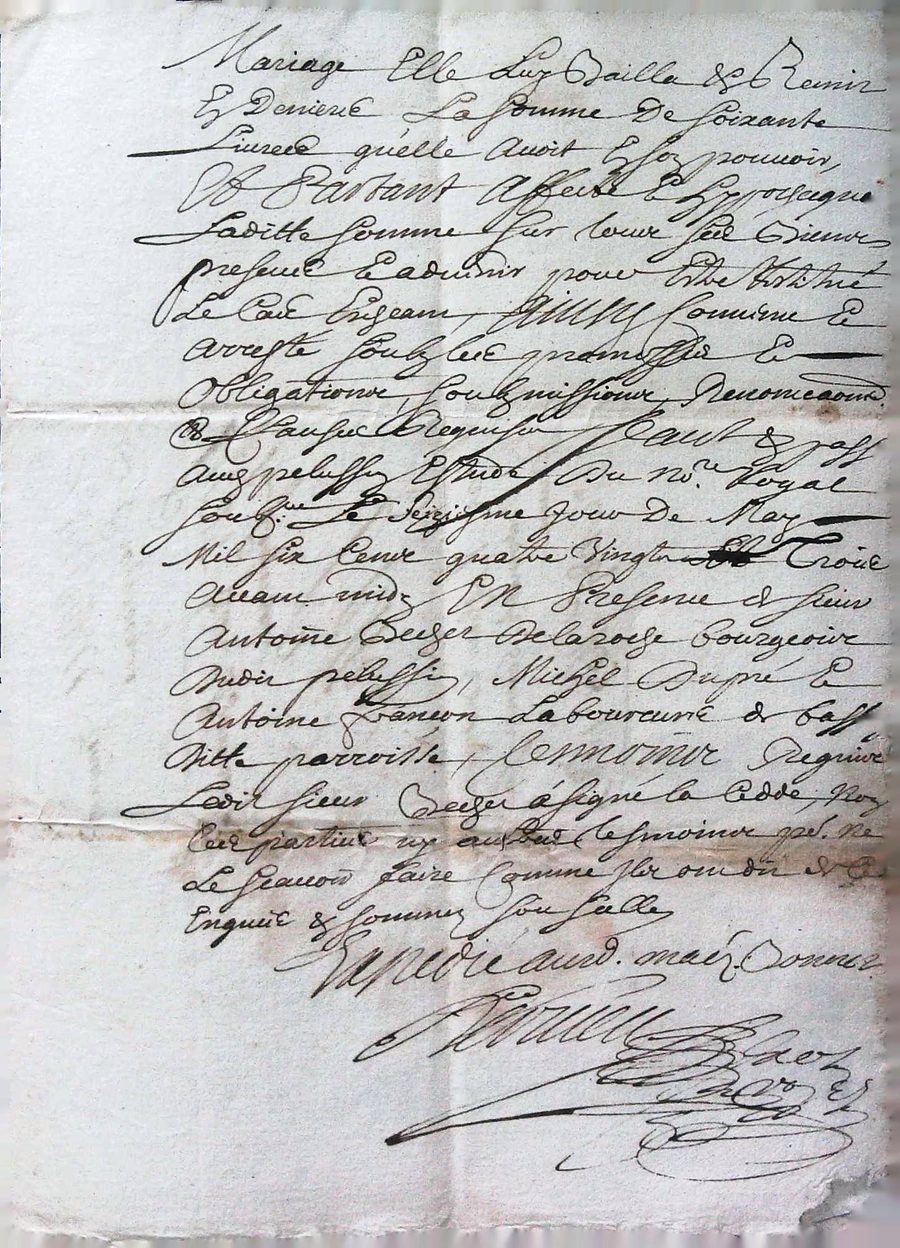 Mariage Elle Luy Bailla & Remit
En Deniers La somme De soixante
Livres qu'elle avoit En son pouvoir,
Et Partant Affecte & hyppotheque
Laditte somme sur tous ses Biens
presens et advenir pour Estre Restitué
Le Cas Escheant, Ainsin Convenu Et
Arresté soubz les promesses Et
Obligations, soubzmissions, Renonciaons
& Clauses Requises faict & passé
aud pelussin Estude Du nore. Royal
soubz.ne Le seiziesme Jour De May
Mil six Cens quatre Vingts Trois
Avant midy EN Presence de sieur
Antoine Becher Delaroche bourgeois
Dudit pelussin, Michel Dupré Et
Antoine françon Laboureurs de
ditte parroisse, tesmoins Requis
Ledit sieur Becher a signé la Cedde, Non
Les parties ny tesmoins ne
Le scavoir faire Comme ils ont dit de Ce
Enquis & sommés
Expedié aud.